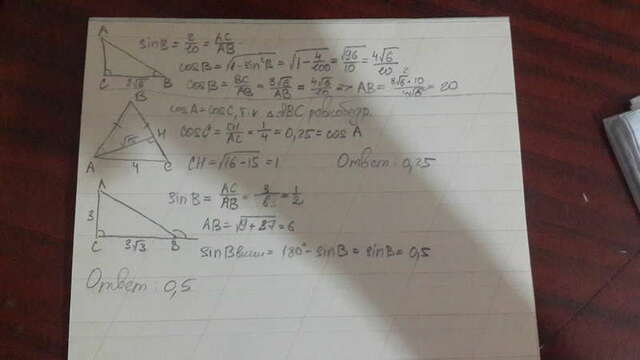 A
C
B
cosB = √1-sin²B = √1-4/100 = √96/10 = 4√6/10
cosB = BC/AB = 8√6/AB = 4√6/10 => AB = 8√6·10/4√6 = 20
B
√15
H
A
4
C
cosA = cosC, т.к △ABC равнобедр.
cosC = CH/AC = 1/4 = 0,25 = cos A
CH = √16-15 = 1 Ответ: 0,25
A
3
C
3√3
B
sinB = AC/AB = 3/6 = 1/2
AB = √9+27 = 6
sinBвнеш = 180° - sinB = sinB = 0,5
Ответ: 0,5